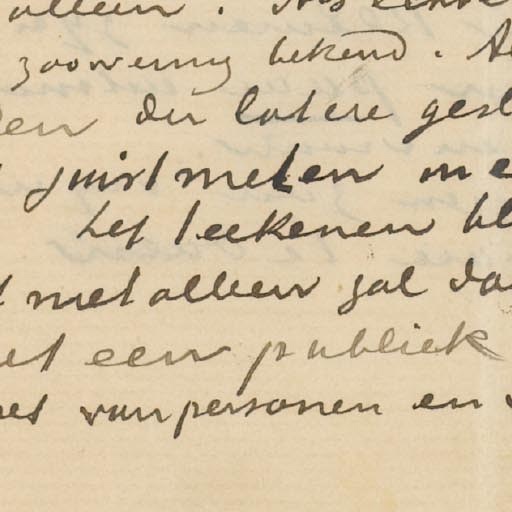 alleen.
zoo weinig bekend.
den der latere gesl
juist meten me
het teekenen bl
t met alleen zal da
et een publiek
et van personen en